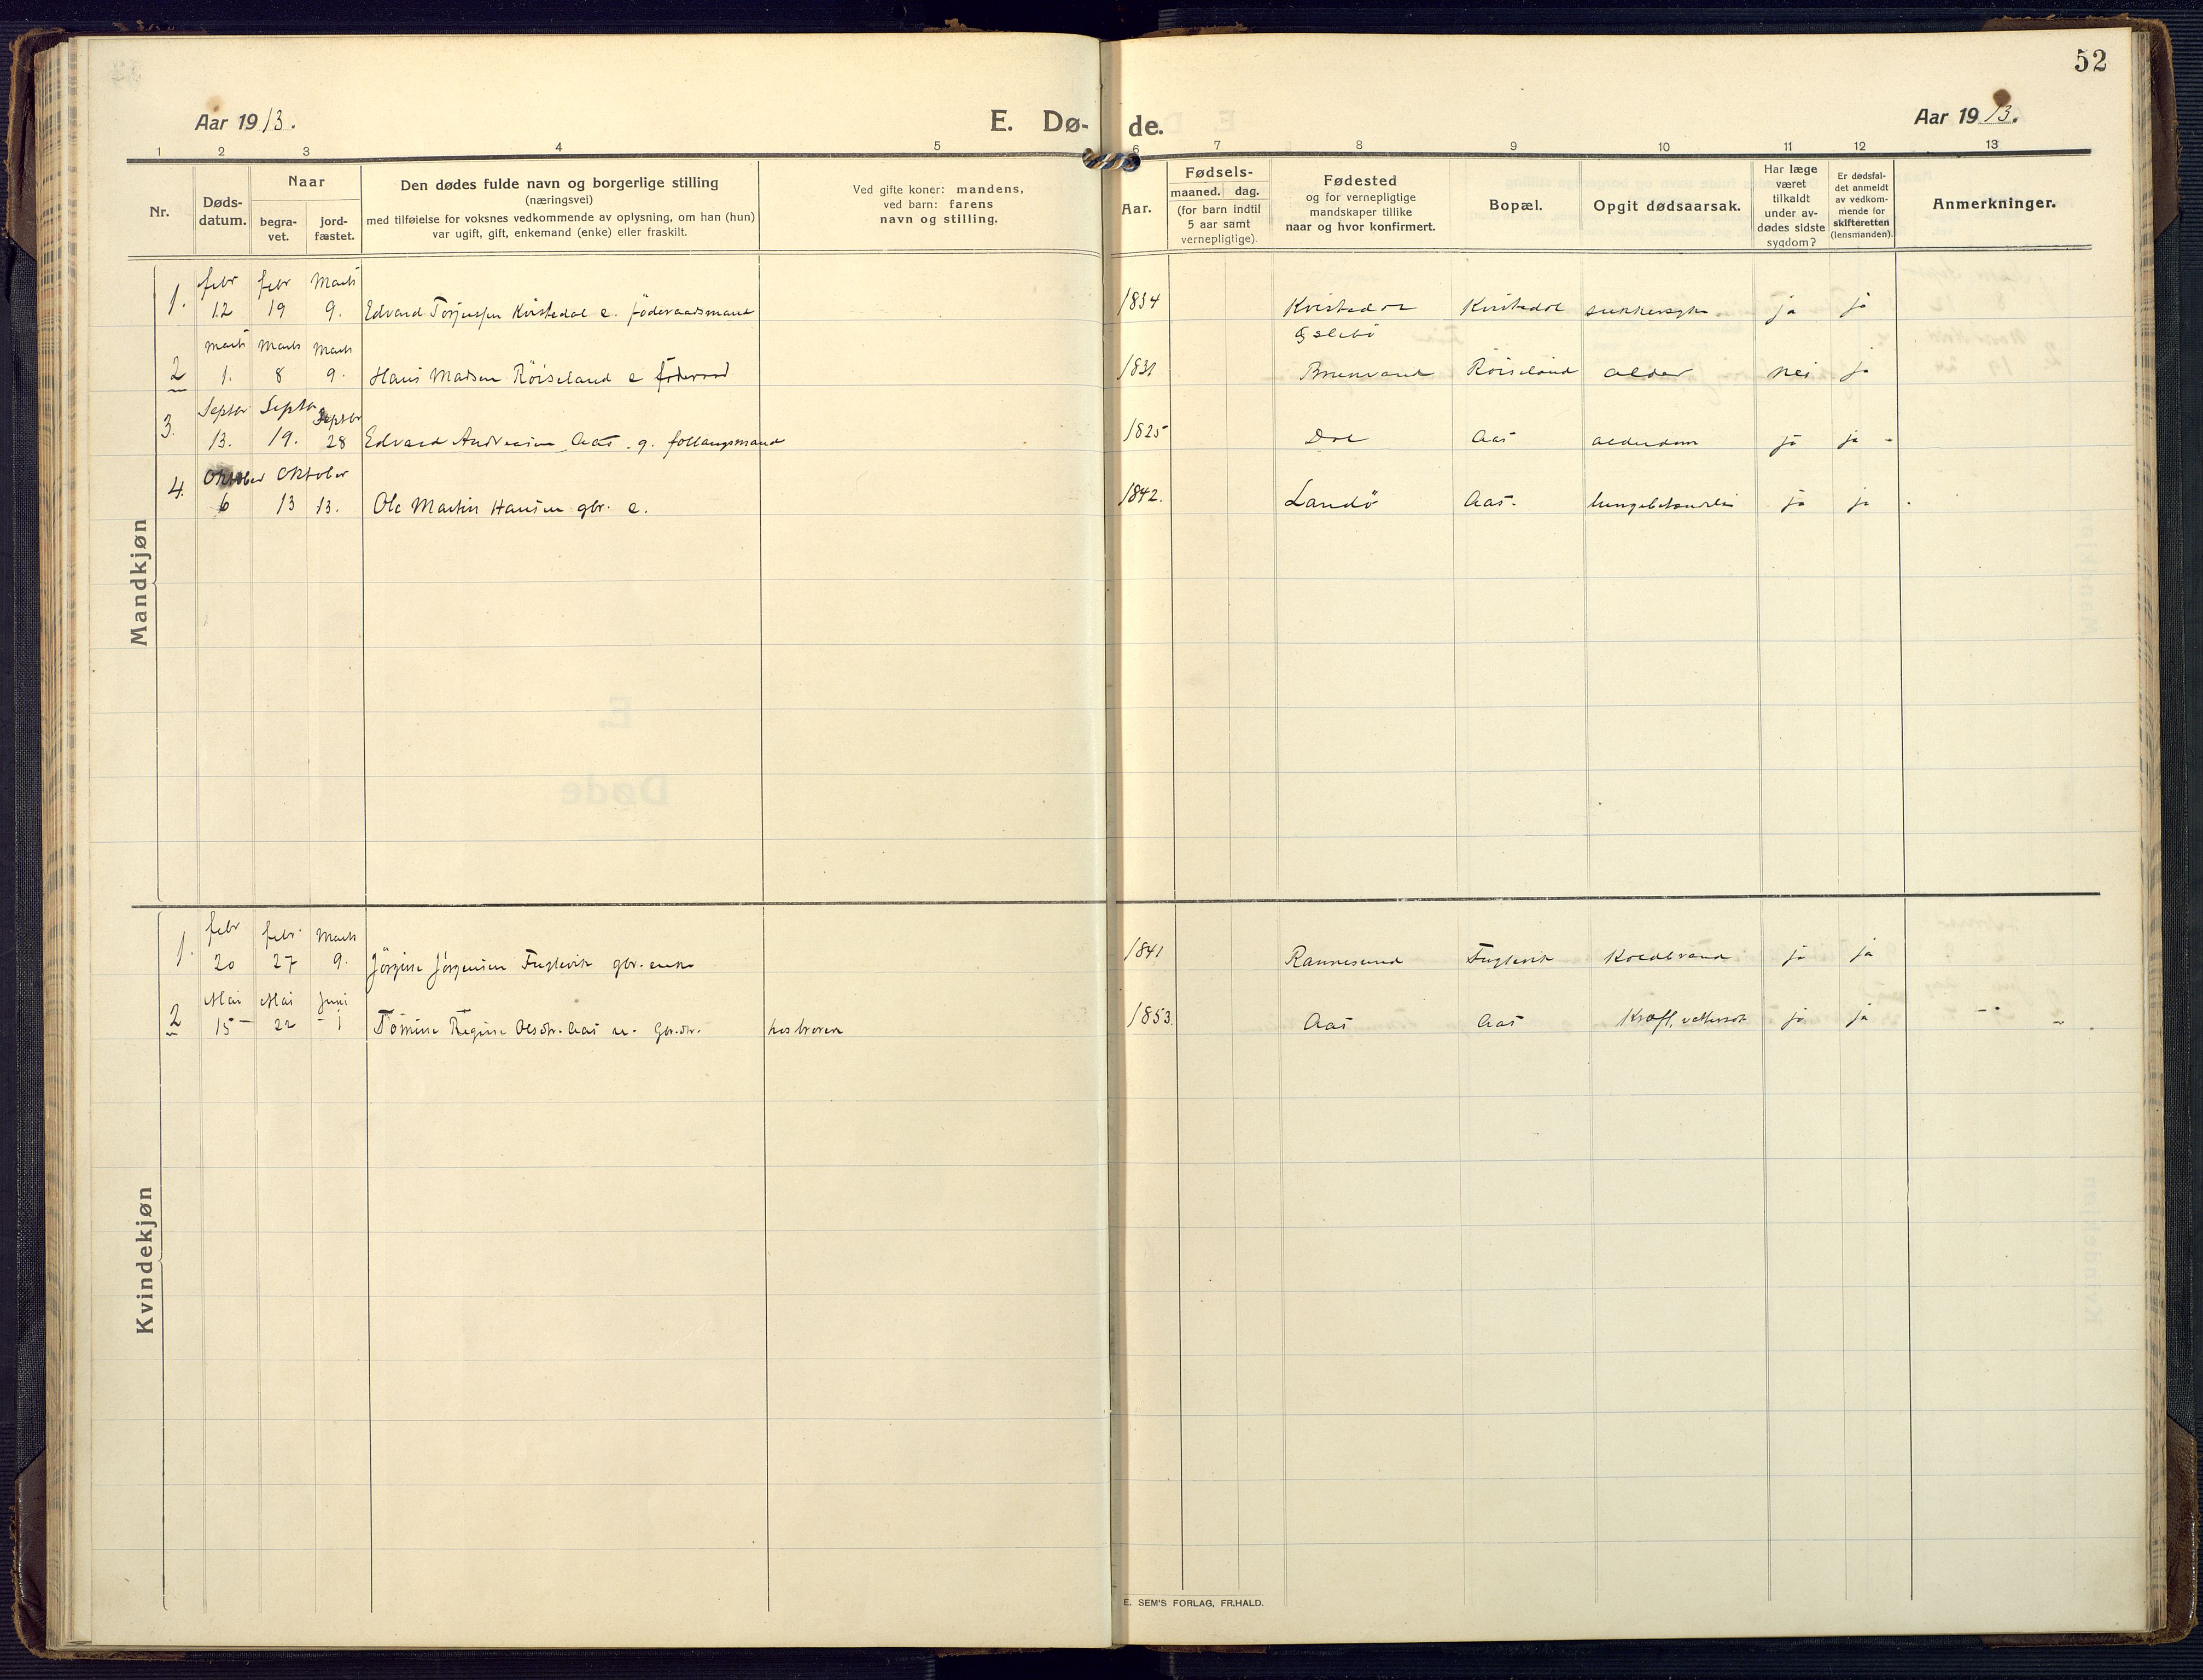 52
Aar 1913.
E. Dø-
de.
Aar 1913.
1 2 3 4 5 6 7 8 9 10 11 12 13
Nr.
Døds-
datum.
Naar
begra-
vet.
jord-
fæstet.
Den dødes fulde navn og borgerlige stilling
(næringsvei)
med tilføielse for voksnes vedkommende av oplysning, om han (hun)
var ugift, gift, enkemand (enke) eller fraskilt.
Ved gifte koner: mandens,
ved barn: farens
navn og stilling.
Aar.
Fødsels-
maaned. dag.
(for barn indtil
5 aar samt
vernepligtige).
Fødested
og for vernepligtige
mandskaper tillike
naar og hvor konfirmert.
Bopæl.
Opgit dødsaarsak.
Har læge
været
tilkaldt
under av-
dødes sidste
sygdom?
Er dødsfal-
det anmeldt
av vedkom-
mende for
skifteretten
(lensmanden).
Anmerkninger.
Mandkjøn
febr febr Marts
1. 12 19 9. Edvard Kvistedal e. föderaadsmand 1834 Kvistedal Kvistedal sukkersyke ja ja
Marts Marts Marts
2 1. 8 9. Hans Madsen Röiseland e föderaad 1831 Brunvand Röiseland alder nei ja
Septbr Septbr Septbr
3. 13. 19. 28 Edvard Andreasen Aas. g. 1825 Dal Aas alderdom ja ja
Oktober Oktober
4. 6 13 13. Ole Martin Hansen gbr. e. 1842. Landö Aas. ja ja
Kvindekjøn
febr febr. Marts
1. 20 27 9. Jörgine Jörgensen Fuglevik gbr. enke 1841 Rannesund Fuglevik Koldbrand ja ja
Mai Mai Juni
2 15 22 1 Tomine Regine Olsdtr. Aas gbr.dtr. 1853. Aas Aas Kræft, ja ja
E. SEM'S FORLAG, FR.HALD.